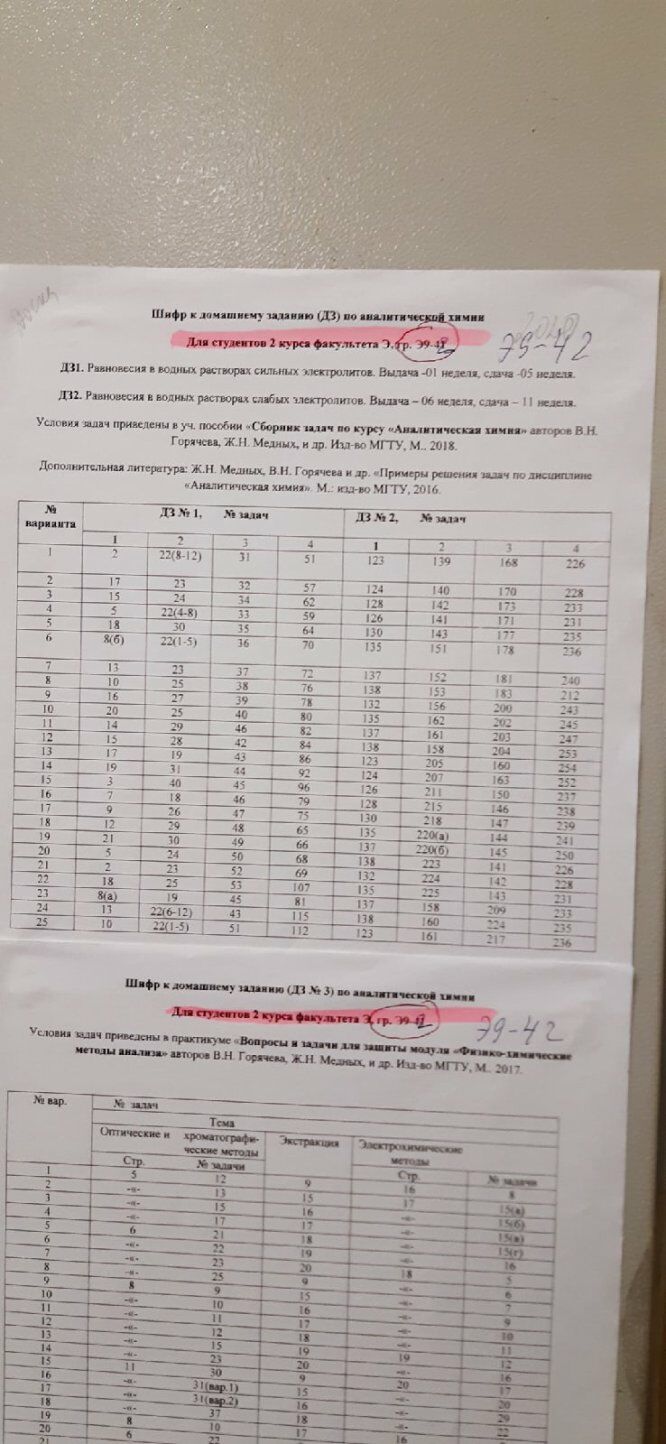 Шифр к домашнему заданию (ДЗ) по аналитической химии
Для студентов 2 курса факультета Э, гр. Э9-42 Э9-42
ДЗ1. Равновесия в водных растворах сильных электролитов. Выдача -01 неделя, сдача -05 неделя.
ДЗ2. Равновесия в водных растворах слабых электролитов. Выдача – 06 неделя, сдача – 11 неделя.
Условия задач приведены в уч. пособии «Сборник задач по курсу «Аналитическая химия» авторов В.Н.
Горячева, Ж.Н. Медных, и др. Изд-во МГТУ, М.. 2018.
Дополнительная литература: Ж.Н. Медных, В.Н. Горячева и др. «Примеры решения задач по дисциплине
«Аналитическая химия». М.: изд-во МГТУ, 2016.
№ ДЗ № 1, № задач ДЗ № 2, № задач
варианта
1 2 3 4 1 2 3 4
1 2 22(8-12) 31 51 123 139 168 226
2 17 23 32 57 124 140 170 228
3 15 24 34 62 128 142 173 233
4 5 22(4-8) 33 59 126 141 171 231
5 18 30 35 64 130 143 177 235
6 8(б) 22(1-5) 36 70 135 151 178 236
7 13 23 37 72 137 152 181 240
8 10 25 38 76 138 153 183 212
9 16 27 39 78 132 156 200 243
10 20 25 40 80 135 162 202 245
11 14 29 46 82 137 161 203 247
12 15 28 42 84 138 158 204 253
13 17 19 43 86 123 205 160 254
14 19 31 44 92 124 207 163 252
15 3 40 45 96 126 211 150 237
16 7 18 46 79 128 215 146 238
17 9 26 47 75 130 218 147 239
18 12 29 48 65 135 220(а) 144 241
19 21 30 49 66 137 220(б) 145 250
20 5 24 50 68 138 223 141 226
21 2 23 52 69 132 224 142 228
22 18 25 53 107 135 225 143 231
23 8(а) 19 45 81 137 158 209 233
24 13 22(6-12) 43 115 138 160 224 235
25 10 22(1-5) 51 112 123 161 217 236
Шифр к домашнему заданию (ДЗ № 3) по аналитической химии
Для студентов 2 курса факультета Э, гр. Э9-42 Э9-42
Условия задач приведены в практикуме «Вопросы и задачи для защиты модуля «Физико-химические
методы анализа» авторов В.Н. Горячева, Ж.Н. Медных, и др. Изд-во МГТУ, М.. 2017.
№ вар. № задач
Тема
Оптические и хроматографи- Экстракция Электрохимические
ческие методы методы
Стр. № задачи Стр. № задачи
1 5 12 9 16 8
2 -«- 13 15 17 15(а)
3 -«- 15 16 -«- 15(б)
4 -«- 17 17 -«- 15(в)
5 6 21 18 -«- 15(г)
6 -«- 22 19 -«- 16
7 -«- 23 20 18 5
8 -«- 25 9 -«- 6
9 8 9 15 -«- 7
10 -«- 10 16 -«- 9
11 -«- 11 17 -«- 10
12 -«- 12 18 -«- 11
13 -«- 15 19 19 12
14 -«- 23 20 -«- 16
15 11 30 9 20 17
16 -«- 31(вар.1) 15 -«- 20
17 -«- 31(вар.2) 16 -«- 29
18 -«- 37 18 -«- 22
19 8 10 17 16
20 6 22
21